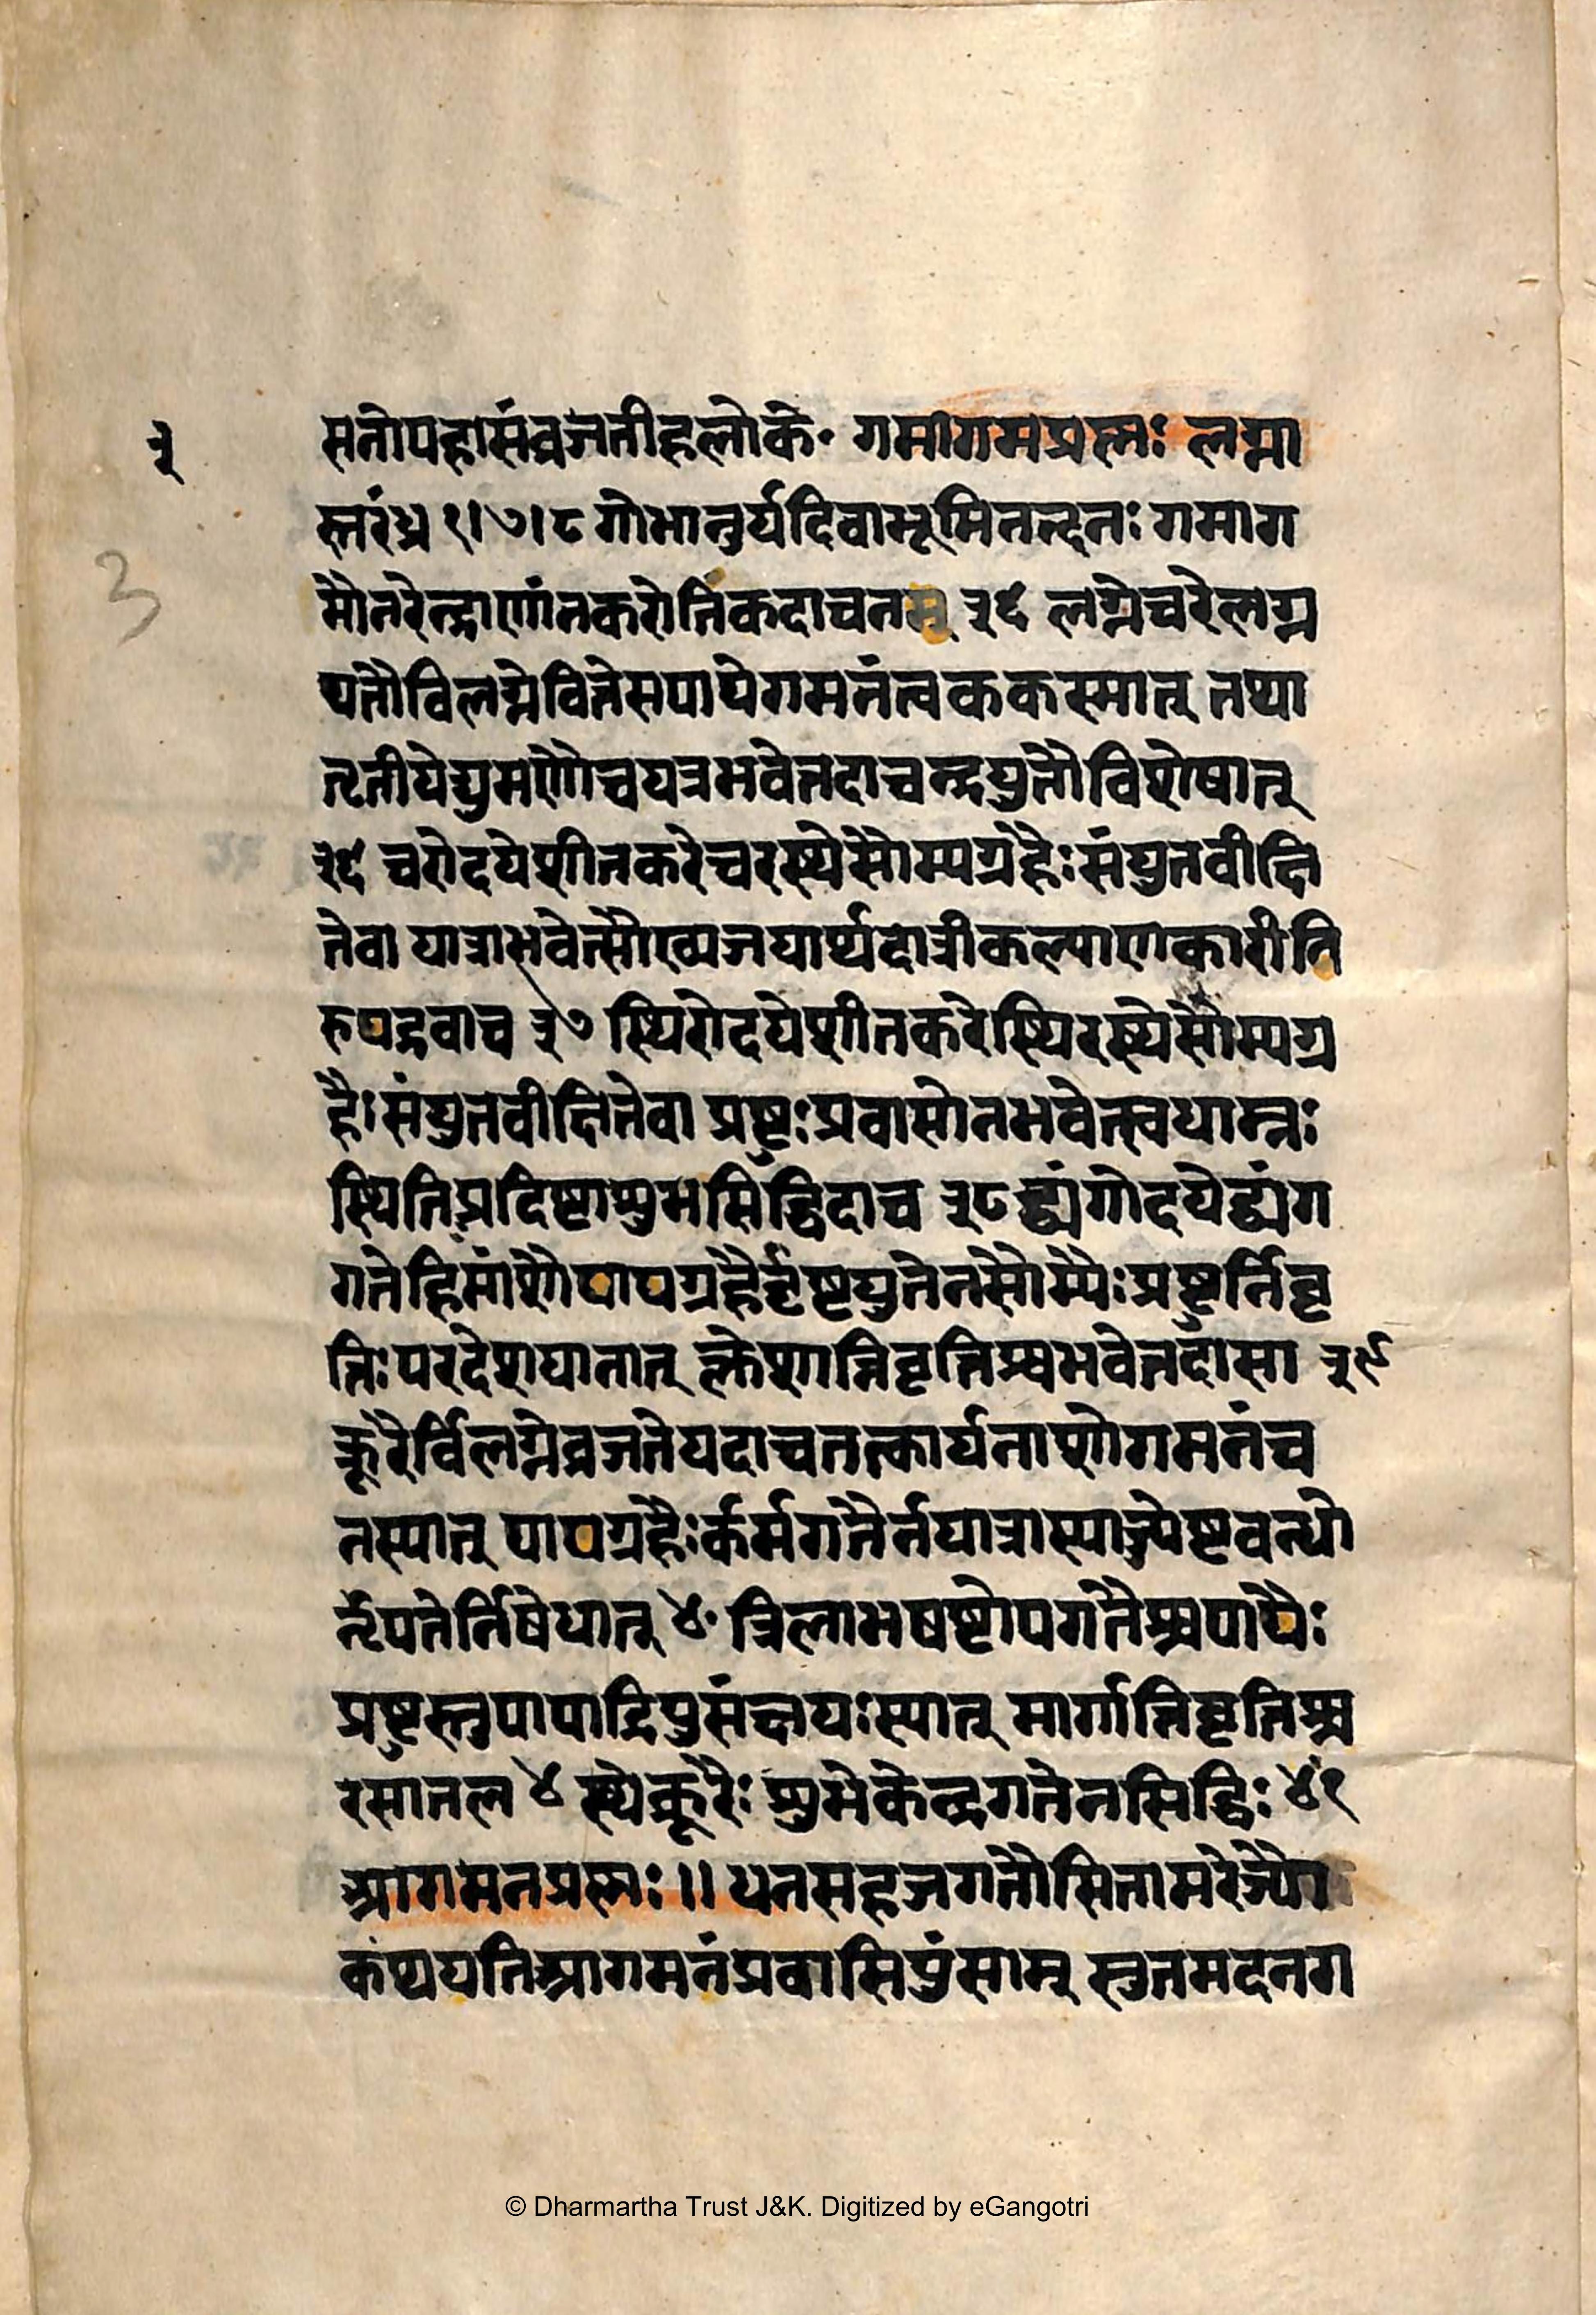 ३
3
सतोपहासंव्रजतीहलोके॰ गमागमप्रश्नः लग्ना
स्तरंध्र १।७।८ गोभानुर्यदिवाभूमिनन्दनः गमाग
मौनरेन्द्राणांनकरोतिकदाचनम् ३६ लग्नेचरेलग्न
पतौविलग्नेवित्तेसपापेगमनंत्वककस्मात् तथा
तृतीयेद्युमणौचयत्रभवेत्तदाचन्द्रयुतौविशेषात्
३६ चरोदयेशीतकरेचरस्थेसौम्यग्रहैःसंयुतवीक्षि
तेवा यात्राभवेत्सौख्यजयार्थदात्रीकल्याणकारीति
रुपद्रवाच ३७ स्थिरोदयेशीतकरेस्थिरस्थेसौम्यग्र
हैः संयुतवीक्षितेवा प्रष्टुःप्रवासोनभवेत्स्वधाम्नः
स्थितिप्रदिष्टाशुभसिद्धिदाच ३८ द्व्यंगोदयेद्व्यंग
गतेहिमांशौपापग्रहैर्दृष्टयुतेनसौम्यैः प्रष्टुर्निवृ
त्तिः परदेशयातात् क्लेशान्निवृत्तिश्चभवेत्तदासा ३९
क्रूरैर्विलग्नेव्रजतेयदाचतत्कार्यनाशोगमनंच
नस्यात् पापग्रहैःकर्मगतैर्नयात्रास्याज्येष्टबन्धो
र्नृपतेर्निषेधात् ४॰ त्रिलाभषष्टोपगतैश्चपापैः
प्रष्टुस्तुपापाद्रिपुसंक्षयःस्यात् मार्गान्निवृत्तिश्च
रसातल ४ स्थेक्रूरैः शुभेकेन्द्रगतेनसिद्धिः ४१
आगमनप्रश्नः ।। धनसहजगतौसितामरेज्यौ
कथयतिआगमनंप्रवासिपुंसाम् स्तुतमदनग
© Dharmartha Trust J&K. Digitized by eGangotri